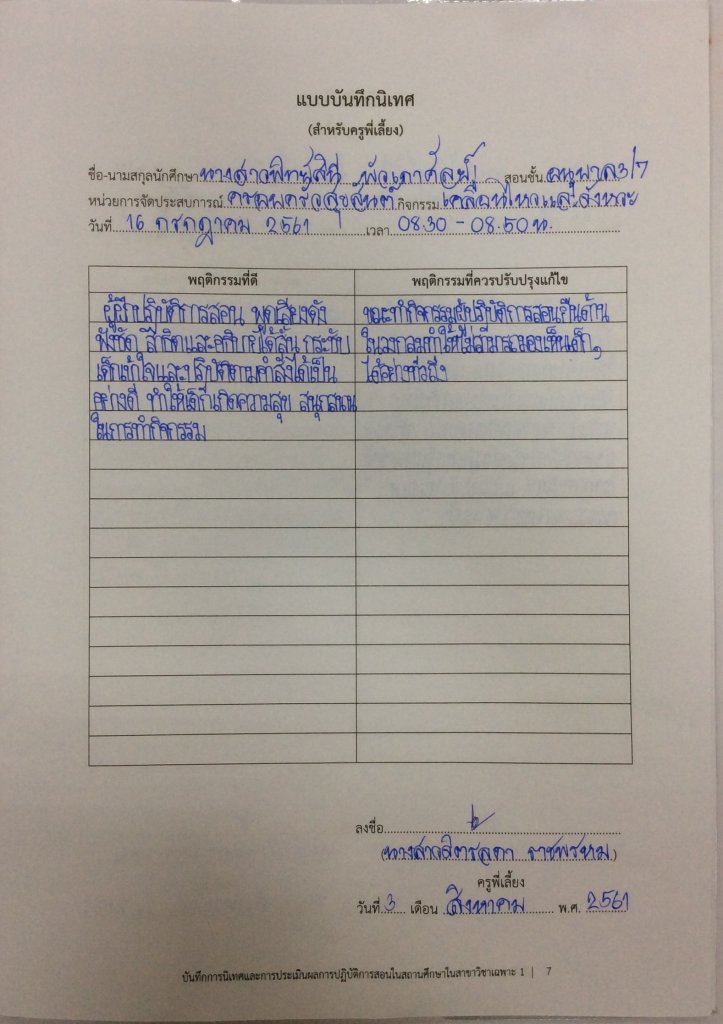 แบบบันทึกนิเทศ
(สำหรับครูพี่เลี้ยง)
ชื่อ-นามสกุลนักศึกษา นางสาวพิทยสินี สอนชั้น อนุบาล3/7
หน่วยการจัดประสบการณ์ ครอบครัวสุขสันต์ กิจกรรม เคลื่อนไหวและจังหวะ
วันที่ 16 กรกฎาคม 2561 เวลา 08.30 - 08.50 น.
พฤติกรรมที่ดี พฤติกรรมที่ควรปรับปรุงแก้ไข
ผู้ฝึกปฏิบัติการสอน พูดเสียงดัง
ฟังชัด สาธิตและอธิบายได้สั้น กระชับ
เด็กเข้าใจและปฏิบัติตามคำสั่งได้เป็น
อย่างดี ทำให้เด็กเกิดความสุข สนุกสนาน
ในการทำกิจกรรม
ขณะทำกิจกรรมผู้ปฏิบัติการสอนยืนด้าน
ในวงกลมทำให้ไม่สามารถมองเห็นเด็กๆ
ได้อย่างทั่วถึง
ลงชื่อ
(นางสาวจิตร์ลดา ราชพรหม)
ครูพี่เลี้ยง
วันที่ 3 เดือน สิงหาคม พ.ศ. 2561
บันทึกการนิเทศและการประเมินผลการปฏิบัติการสอนในสถานศึกษาในสาขาวิชาเฉพาะ 1 | 7